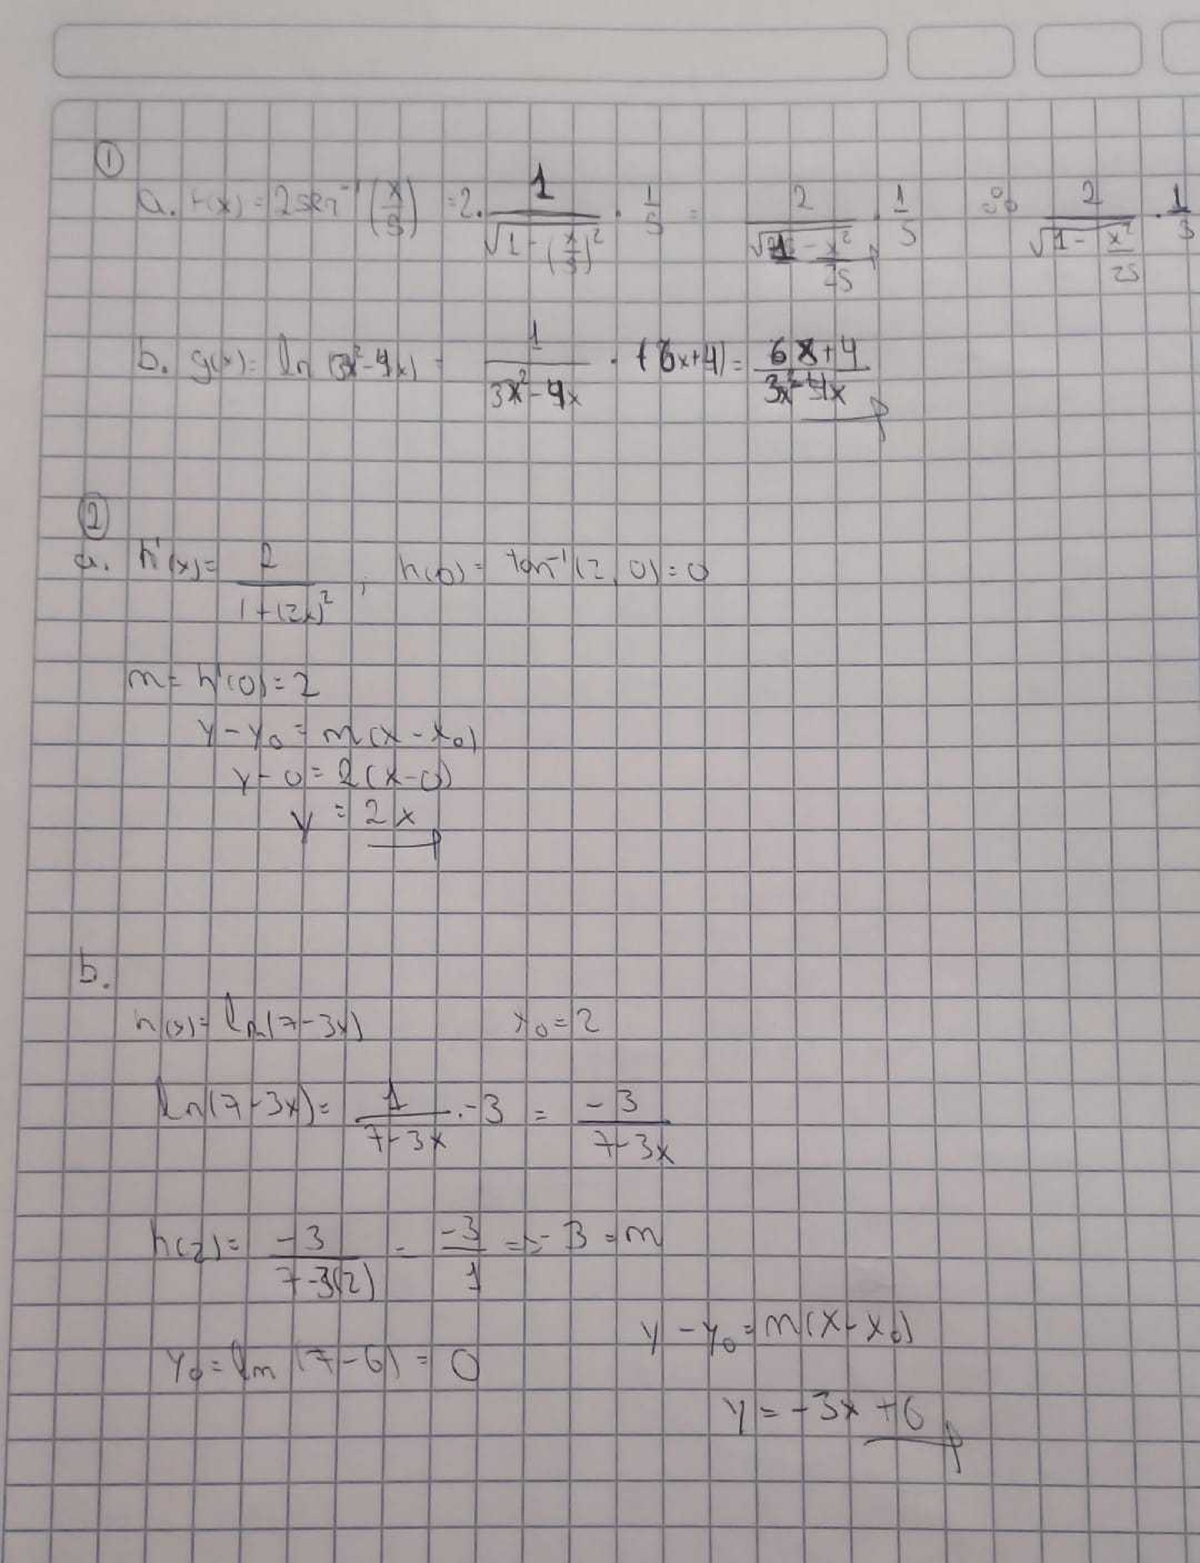 ①
a. f(x) = 2sen⁻¹ (x/5) = 2 · 1/√(1-(x/5)²) · 1/5 = 2/√(1 - x²/25) · 1/5 2/√(1 - x²/25) · 1/5
b. g(x) = ln (3x²-4x) = 1/(3x²-4x) · (6x+4) = (6x+4)/(3x²-4x)
②
a. h'(x) = 2/(1+(2x)²) , h(0) = tan⁻¹(2,0) = 0
m = h'(0) = 2
y - y₀ = m(x - x₀)
y - 0 = 2(x-0)
y = 2x
b.
h(x) = ln(7-3x) x₀ = 2
ln(7-3x) = 1/(7-3x) · -3 = -3/(7-3x)
h(2) = -3/(7-3(2)) = -3/1 = -3 = m
y - y₀ = m(x - x₀)
y₀ = ln (7-6) = 0
y = -3x + 6